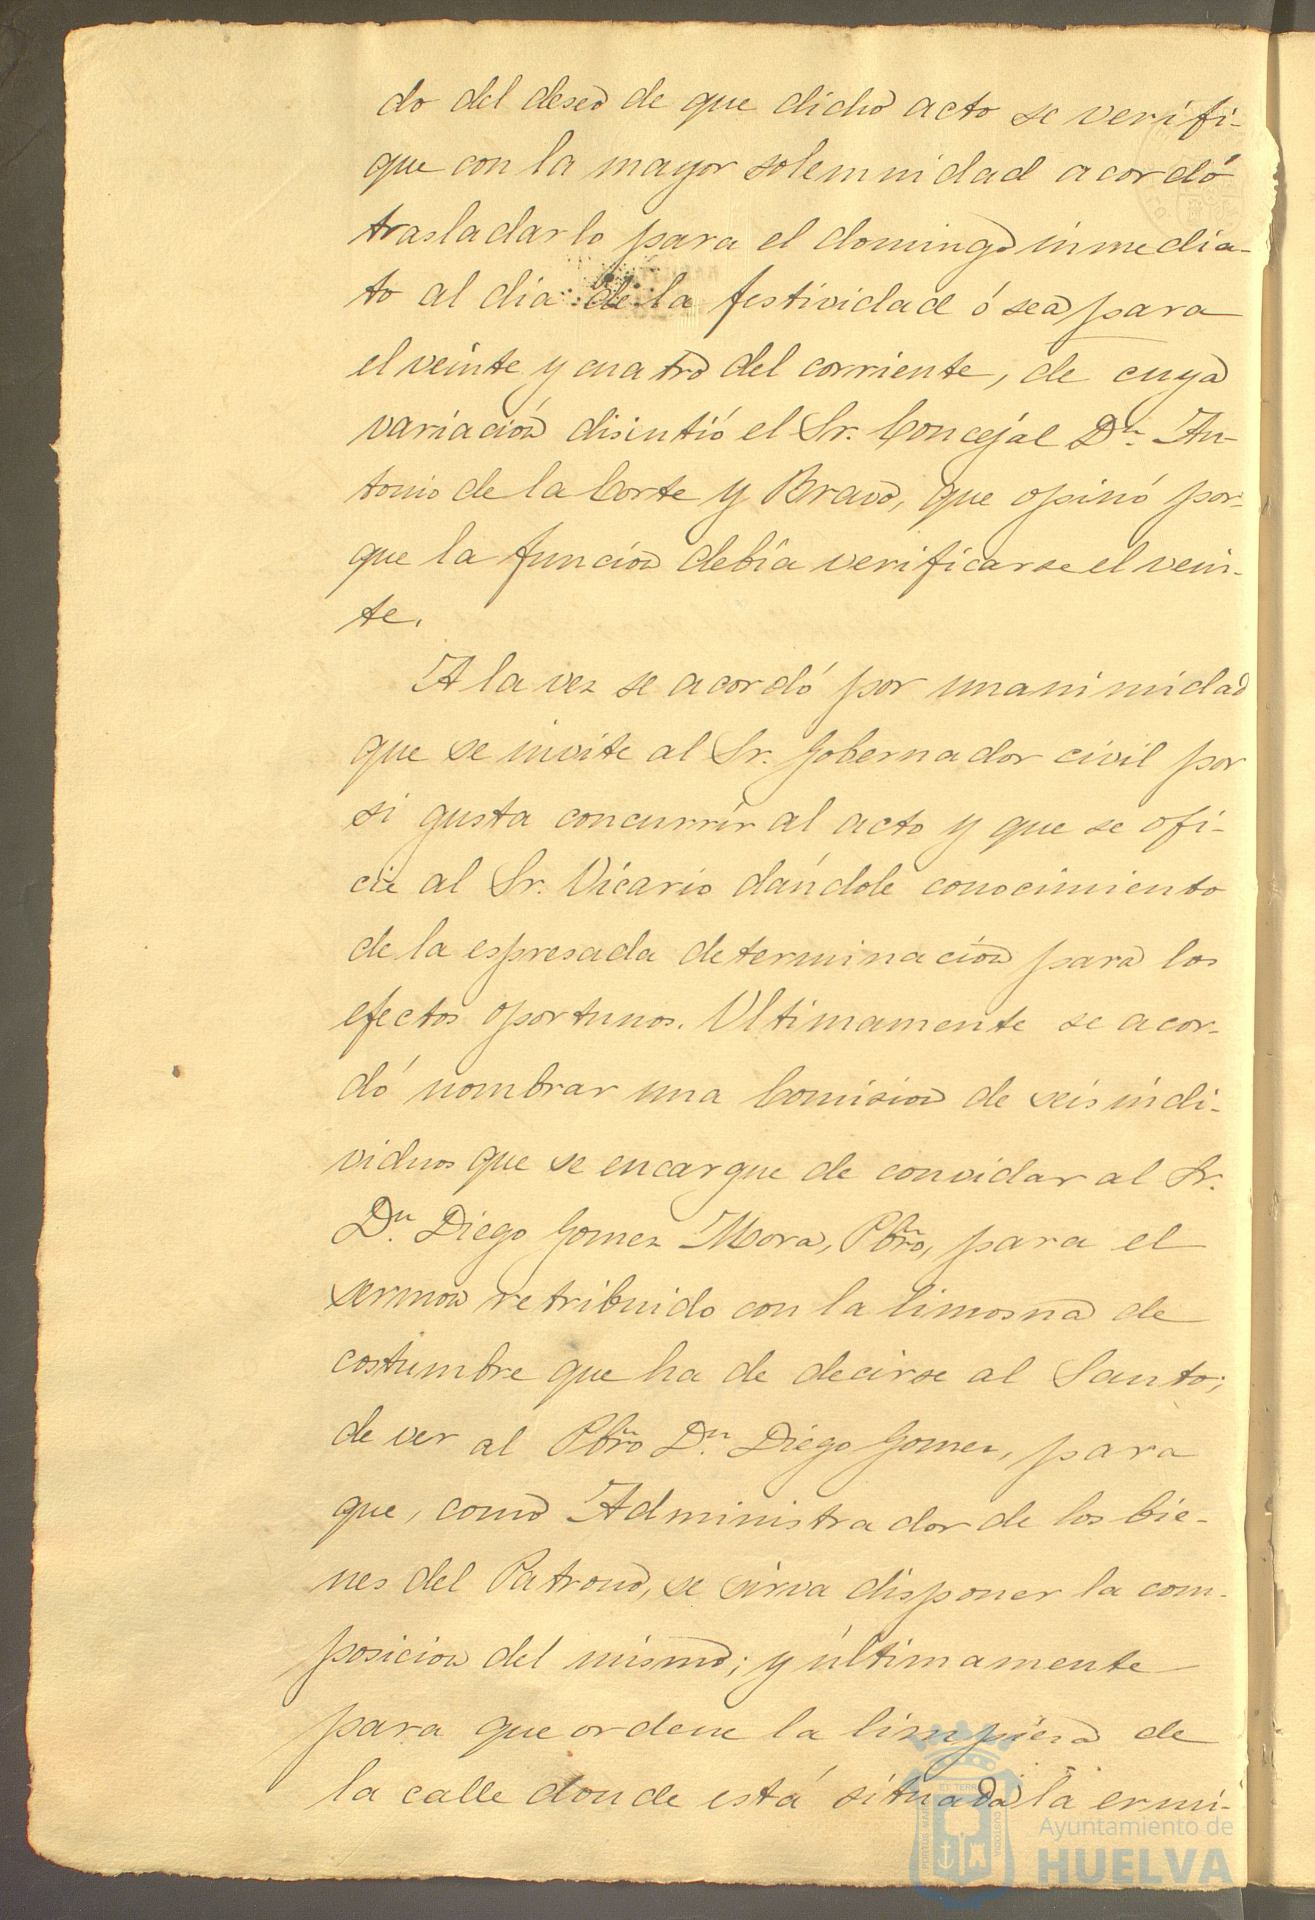 do del deseo de que dicho acto se verifi-
que con la mayor solemnidad acordó
trasladarlo para el domingo inmedia-
to al dia de la festividad ó sea para
el veinte y cuatro del corriente, de cuya
variación disintió el Sr. Concejál Dn. An-
tonio de la Corte y Bravo, que opinó por-
que la función debía verificarse el vein-
te.
A la vez se acordó por unanimidad
que se invite al Sr. Gobernador civil por
si gusta concurrir al acto y que se ofi-
cie al Sr. Vicario dándole conocimiento
de la espresada determinación para los
efectos oportunos. Ultimamente se acor-
dó nombrar una Comision de seis indi-
viduos que se encargue de convidar al Sr.
Dn. Diego Gomez Mora, Pbro, para el
sermon retribuido con la limosna de
costumbre que ha de decirse al Santo;
de ver al Pbro Dn. Diego Gomez, para
que, como Administrador de los bie-
nes del Patrono, se sirva disponer la com-
posicion del mismo; y últimamente
para que ordene la limpieza de
la calle donde está situada la ermi-
Ayuntamiento de
HUELVA